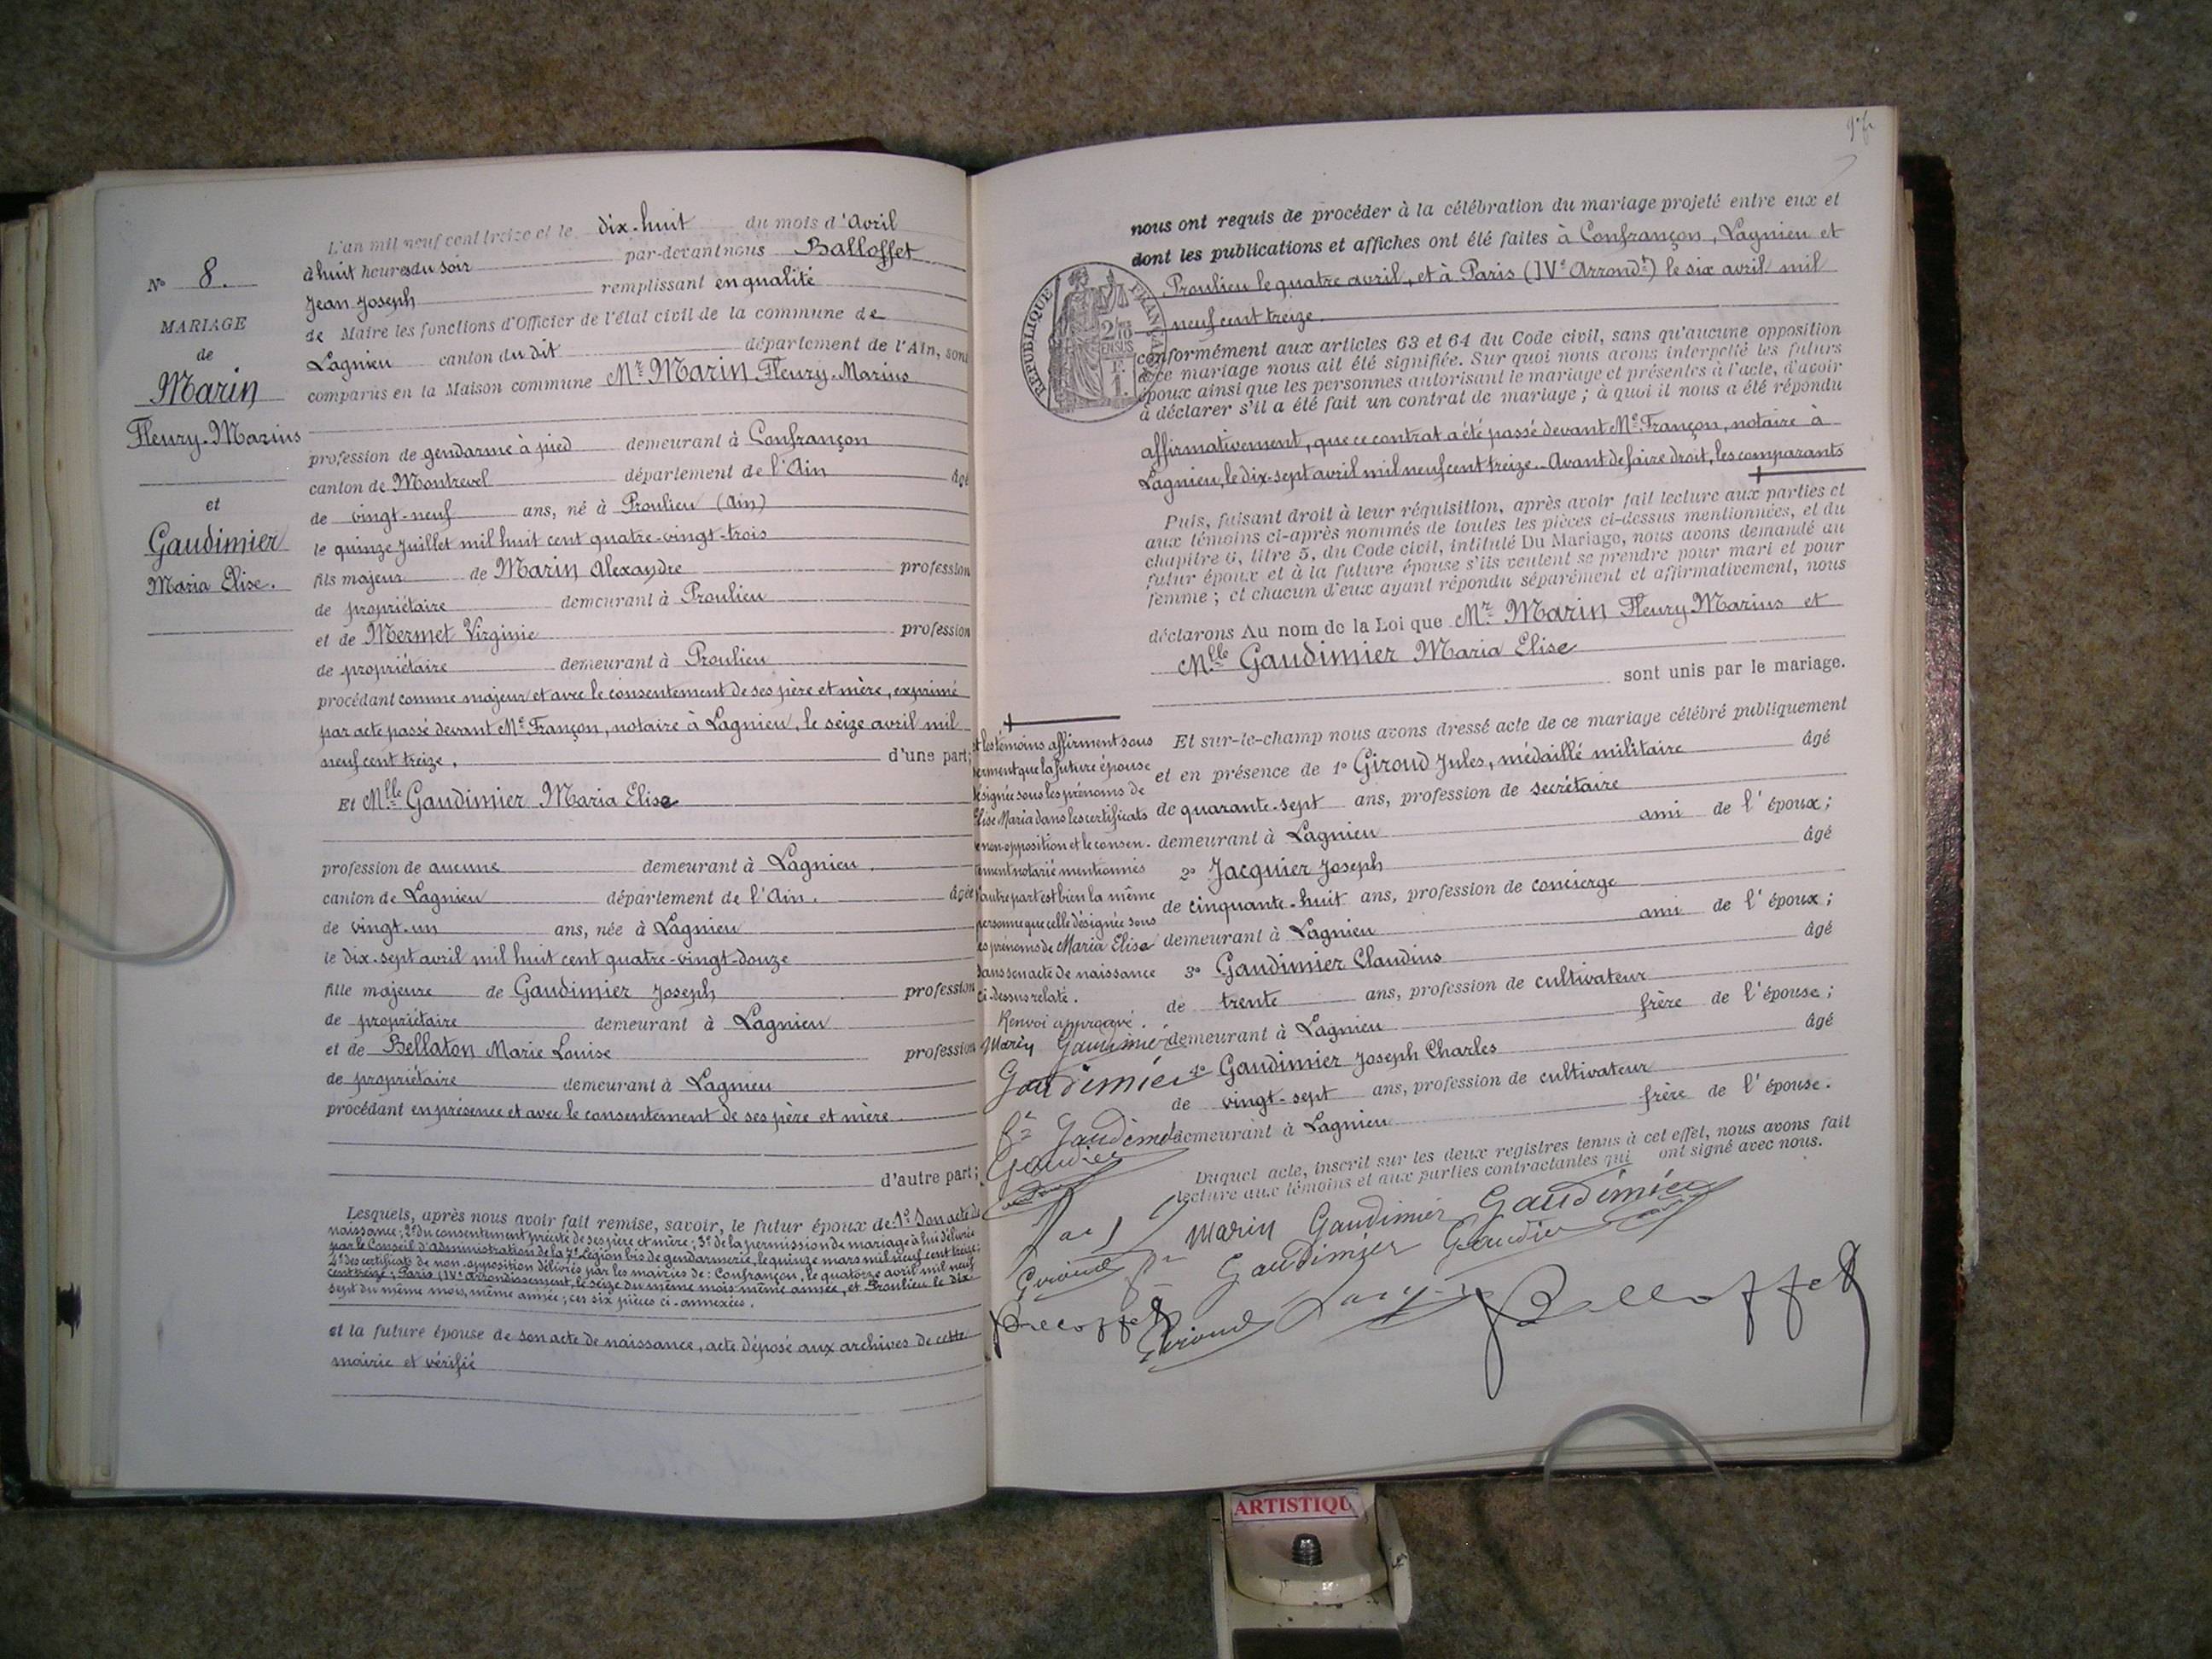 N° 8.
MARIAGE
de
Marin
Fleury-Marius
et
Gaudimier
Maria Elise.
L'an mil neuf cent treize et le dix-huit du mois d'Avril
à huit heures du soir par-devant nous Balloffet
Jean Joseph remplissant en qualité
de Maire les fonctions d'Officier de l'état civil de la commune de
Lagnieu canton du dit département de l'Ain, sont
comparus en la Maison commune Mr Marin Fleury-Marius
profession de gendarme à pied demeurant à Confrançon
canton de Montrevel département de l'Ain âgé
de vingt-neuf ans, né à Proulieu (Ain)
le quinze Juillet mil huit cent quatre-vingt-trois
fils majeur de Marin Alexandre profession
de propriétaire demeurant à Proulieu
et de Mermet Virginie profession
de propriétaire demeurant à Proulieu
procédant comme majeur et avec le consentement de ses père et mère, exprimé
par acte passé devant Me Françon, notaire à Lagnieu, le seize avril mil
neuf cent treize, d'une part;
Et Mlle Gaudimier Maria Elise
profession de aucune demeurant à Lagnieu.
canton de Lagnieu département de l'Ain. âgée
de vingt-un ans, née à Lagnieu
le dix-sept avril mil huit cent quatre-vingt-douze
fille majeure de Gaudimier Joseph profession
de propriétaire demeurant à Lagnieu
et de Bellaton Marie Louise profession
de propriétaire demeurant à Lagnieu
procédant en présence et avec le consentement de ses père et mère
d'autre part;
Lesquels, après nous avoir fait remise, savoir, le futur époux de: 1° Son acte de
naissance; 2° du consentement précité de ses père et mère; 3° de la permission de mariage à lui délivrée
par le Conseil d'administration de la 7e Légion bis de gendarmerie, le quinze mars mil neuf cent treize;
4° des certificats de non-opposition délivrés par les mairies de: Confrançon, le quatorze avril mil neuf
cent treize, Paris (IVe arrondissement, le seize du même mois même année, et Proulieu le dix-
sept du même mois, même année; ces six pièces ci-annexées.
et la future épouse de son acte de naissance, acte déposé aux archives de cette
mairie et vérifié
nous ont requis de procéder à la célébration du mariage projeté entre eux et
dont les publications et affiches ont été faites à Confrançon, Lagnieu et
Proulieu le quatre avril, et à Paris (IVe Arrondt) le six avril mil
neuf cent treize.
REPUBLIQUE FRANÇAISE
2/10 EN SUS
1 F.
conformément aux articles 63 et 64 du Code civil, sans qu'aucune opposition
à ce mariage nous ait été signifiée. Sur quoi nous avons interpellé les futurs
époux ainsi que les personnes autorisant le mariage et présentes à l'acte, d'avoir
à déclarer s'il a été fait un contrat de mariage; à quoi il nous a été répondu
affirmativement, que ce contrat a été passé devant Me Françon, notaire à
Lagnieu, le dix-sept avril mil neuf cent treize. Avant de faire droit, les comparants
Puis, faisant droit à leur réquisition, après avoir fait lecture aux parties et
aux témoins ci-après nommés de toutes les pièces ci-dessus mentionnées, et du
chapitre 6, titre 5, du Code civil, intitulé Du Mariage, nous avons demandé au
futur époux et à la future épouse s'ils veulent se prendre pour mari et pour
femme; et chacun d'eux ayant répondu séparément et affirmativement, nous
déclarons Au nom de la Loi que Mr Marin Fleury Marius et
Mlle Gaudimier Maria Elise
sont unis par le mariage.
et les témoins affirment sous
serment que la future épouse
désignée sous les prénoms de
Elise Maria dans les certificats
de non-opposition et le consen-
tement notarié mentionnés
d'autre part est bien la même
personne que celle désignée sous
les prénoms de Maria Elise
dans son acte de naissance
ci-dessus relaté.
Renvoi approuvé.
Marin Gaudimier
Gaudimier
Gaudimier
Gaudier
Giroud
Balloffet
Et sur-le-champ nous avons dressé acte de ce mariage célébré publiquement
et en présence de 1° Giroud Jules, médaillé militaire âgé
de quarante-sept ans, profession de secrétaire
demeurant à Lagnieu ami de l'époux;
2° Jacquier Joseph âgé
de cinquante-huit ans, profession de concierge
demeurant à Lagnieu ami de l'époux;
3° Gaudimier Claudius âgé
de trente ans, profession de cultivateur
demeurant à Lagnieu frère de l'épouse;
4° Gaudimier Joseph Charles âgé
de vingt-sept ans, profession de cultivateur
demeurant à Lagnieu frère de l'épouse.
Duquel acte, inscrit sur les deux registres tenus à cet effet, nous avons fait
lecture aux témoins et aux parties contractantes qui ont signé avec nous.
Marin Gaudimier Gaudimier
Gaudimier Gaudier
Giroud Balloffet
ARTISTIQU